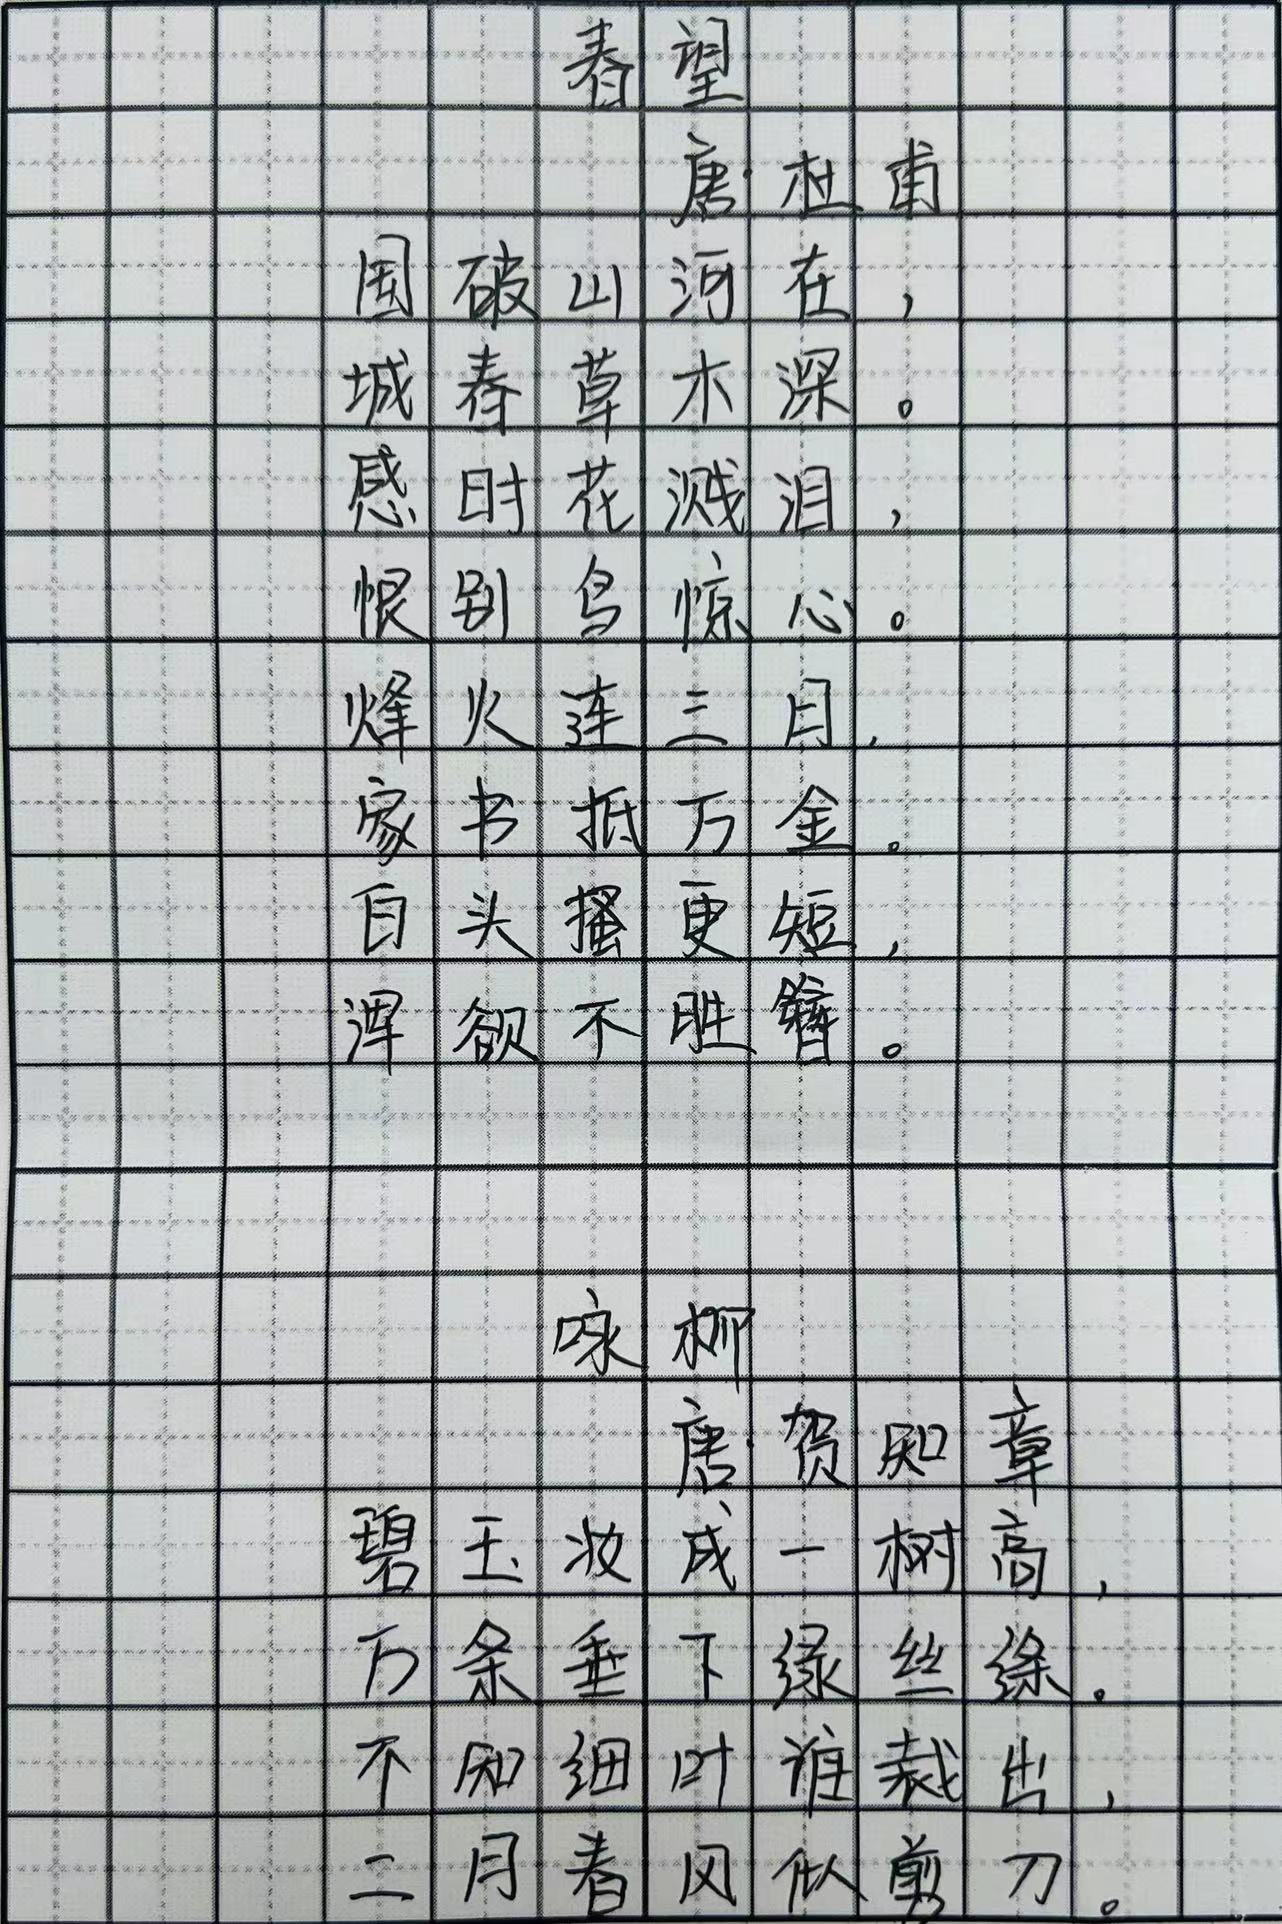 春望
唐·杜甫
国破山河在，
城春草木深。
感时花溅泪，
恨别鸟惊心。
烽火连三月，
家书抵万金。
白头搔更短，
浑欲不胜簪。
咏柳
唐·贺知章
碧玉妆成一树高，
万条垂下绿丝绦。
不知细叶谁裁出，
二月春风似剪刀。